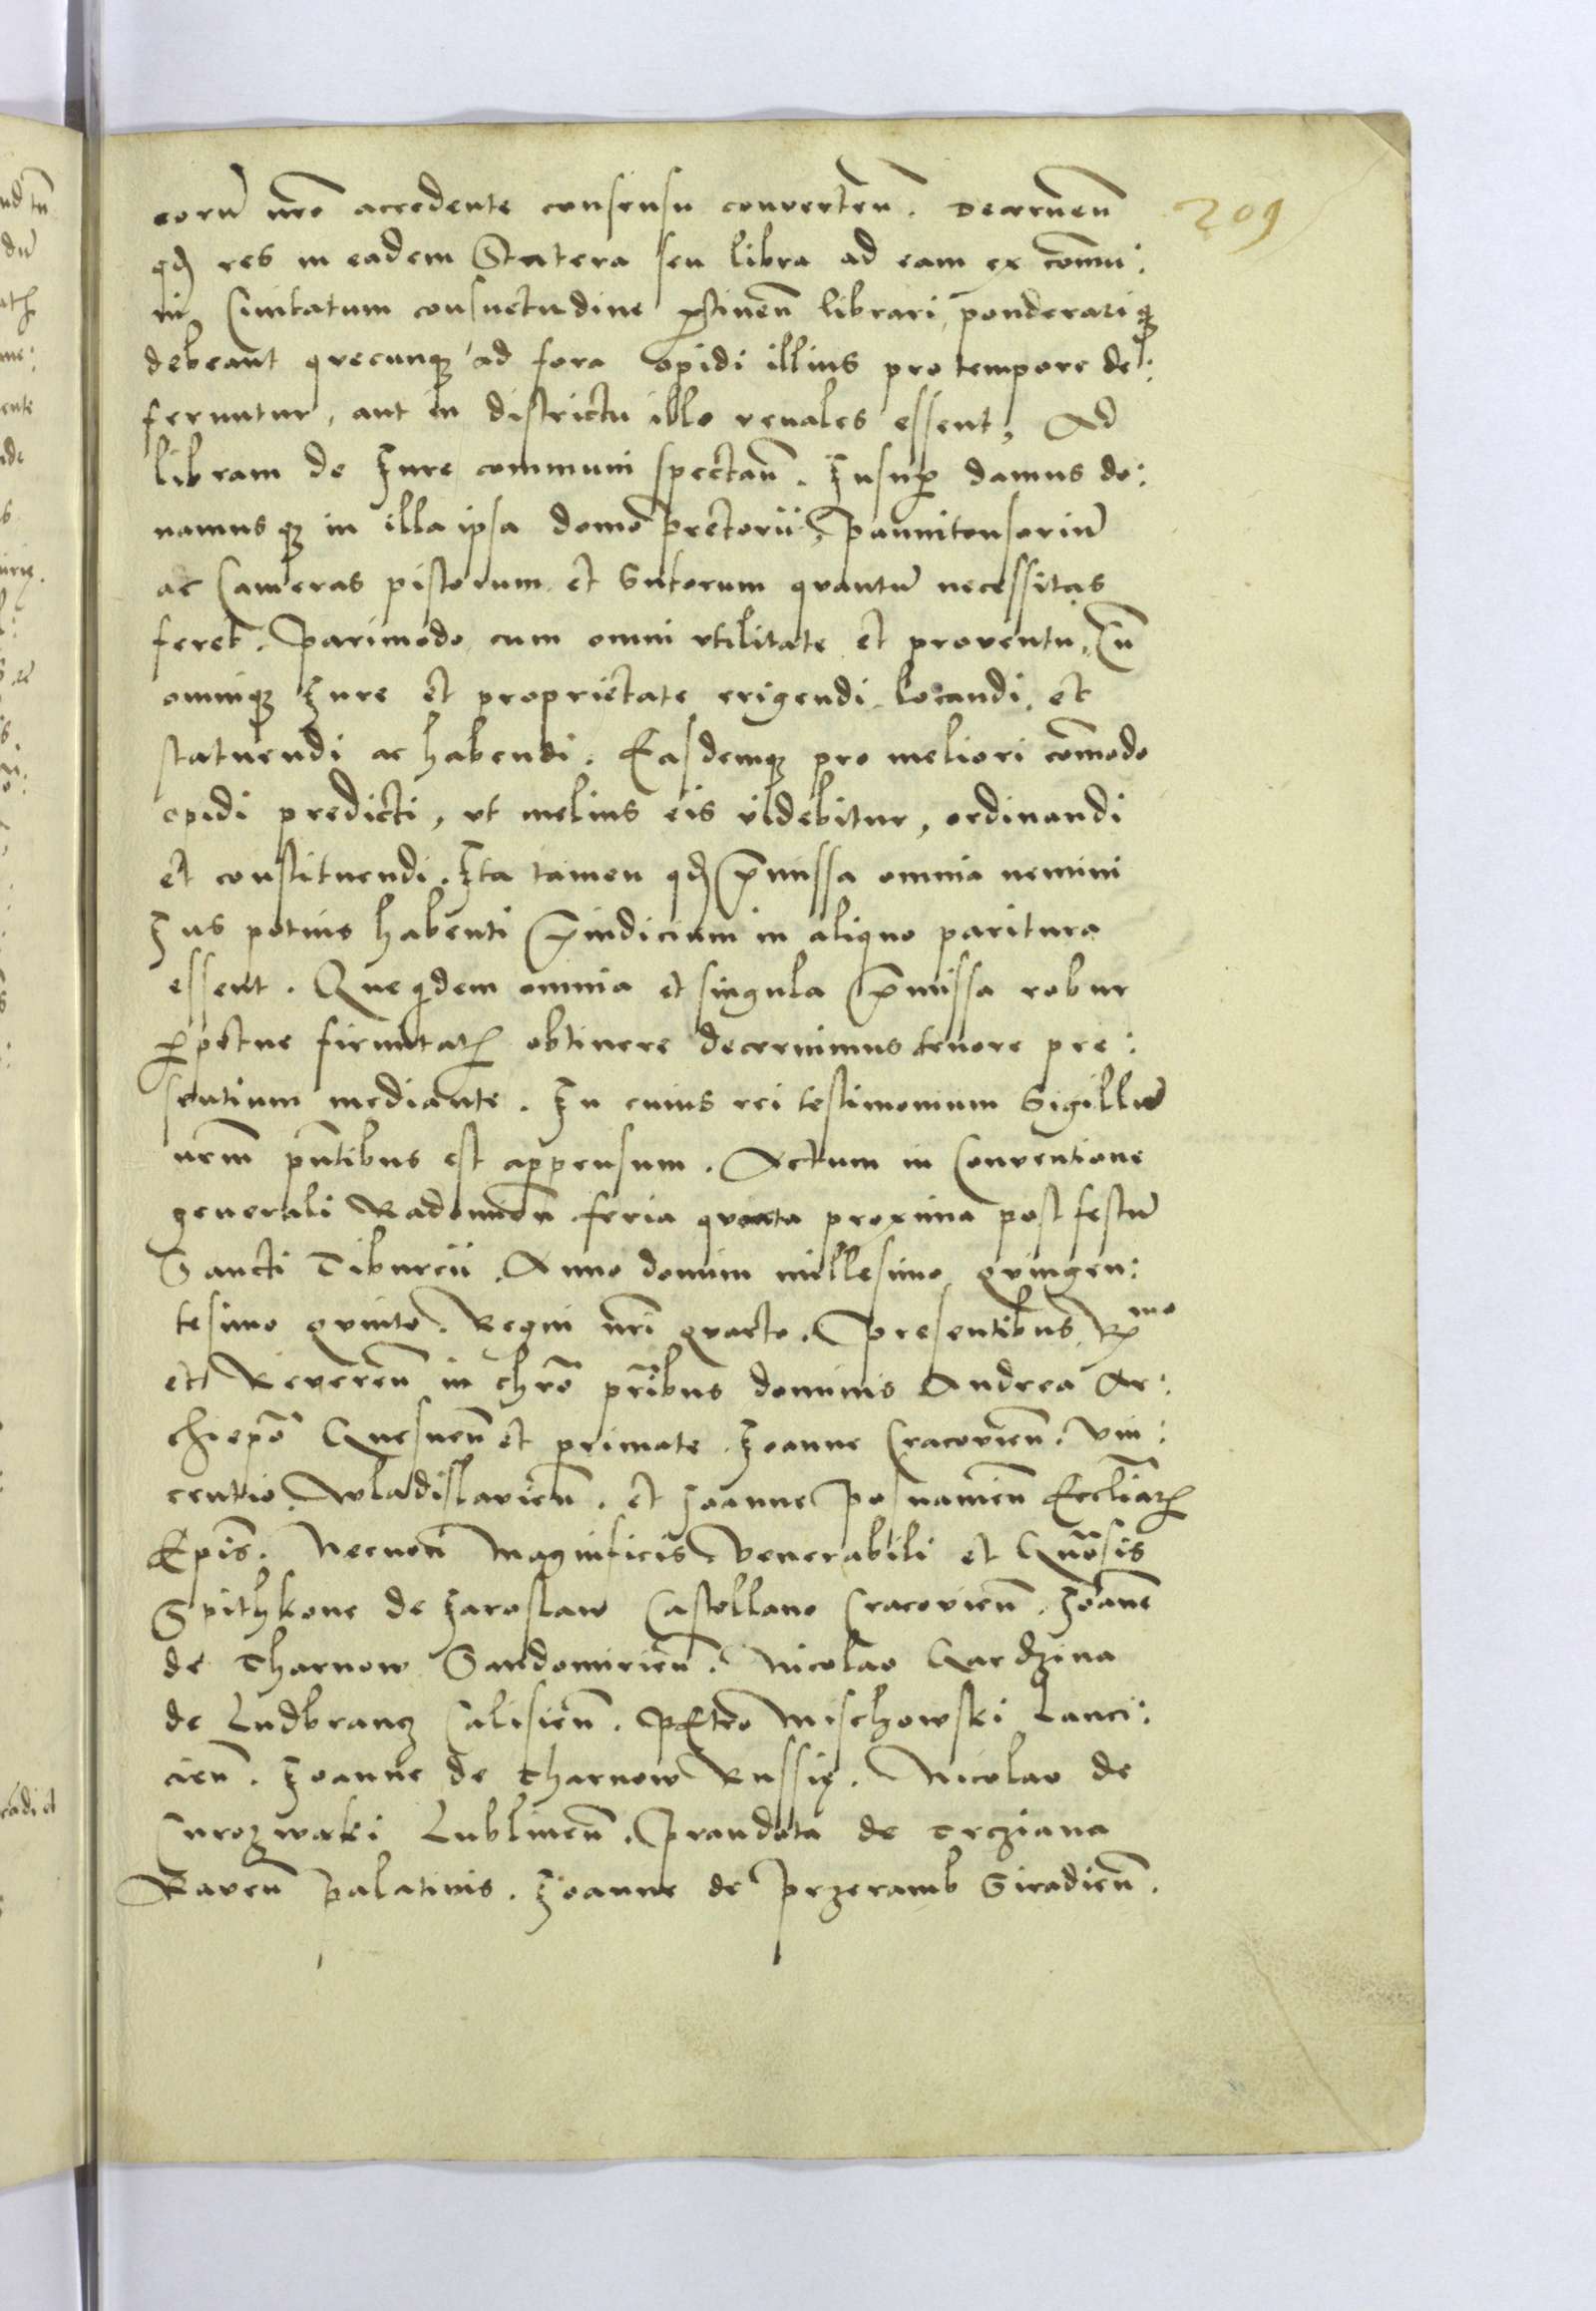 209
eorū nrō accedente consensu converteñ. Decerneñ
qđ res in eadem Statera seu libra ad eam ex com̄u:
ni Civitatum consuetudine ꝑtineñ librari ponderariqꝫ
debeant quecunqꝫ ad fora opidi illius pro tempore de:
feruntur, aut in districtu illo venales essent, Ad
libram de Jure communi spectañ. Insuꝑ damus do:
namusqꝫ in illa ipsa domo pretorii, Pannitonsoriū
ac Cameras pistorum et Sutorum quantū necessitas
feret. Parimodo cum omni utilitate et proventu, Cū
omniqꝫ Jure et proprietate erigendi locandi, et
statuendi ac habendi. Easdemqꝫ pro meliori com̄odo
opidi predicti, ut melius eis videbitur, ordinandi
et constituendi. Ita tamen qđ p̄missa omnia nemini
Jus potius habenti p̄iudicium in aliquo paritura
essent. Que qͥdem omnia et singula p̄missa robur
ꝑpetue firmitatꝭ obtinere decernimus tenore pre:
sentium mediante. In cuius rei testimonium Sigillū
nrm̄ pn̄tibus est appensum. Actum in Conventione
generali Radomieñ feria quarta proxima post festū
Sancti Tiburcii. Anno domini millesimo quingen:
tesimo quinto. Regni nr̄i quarto. Presentibus Rmo
etРевереñ in chrō pr̄ibus dominis Andrea Ar:
chiepō Gnesneñ et primate. Joanne Cracovieñ. Vin:
centio Wladislavieñ. et Joanne Posnanieñ Eccliatꝝ
Epis̄. Necnon Magnificis, Venerabili et Gn̄osis
Spithkone de Jaroslaw Castellano Cracovieñ. Joanne
de Tharnow Sandomirieñ. Nicolao Gardzina
de Ludbrancz Calisieñ. Petro Mischowski Lanci:
cieñ. Joanne de Tharnow Russię. Nicolao de
Curozwaki Lublineñ. Prandota de Trcziana
Raveñ Palatinis. Joanne de Przeramb Siradieñ.